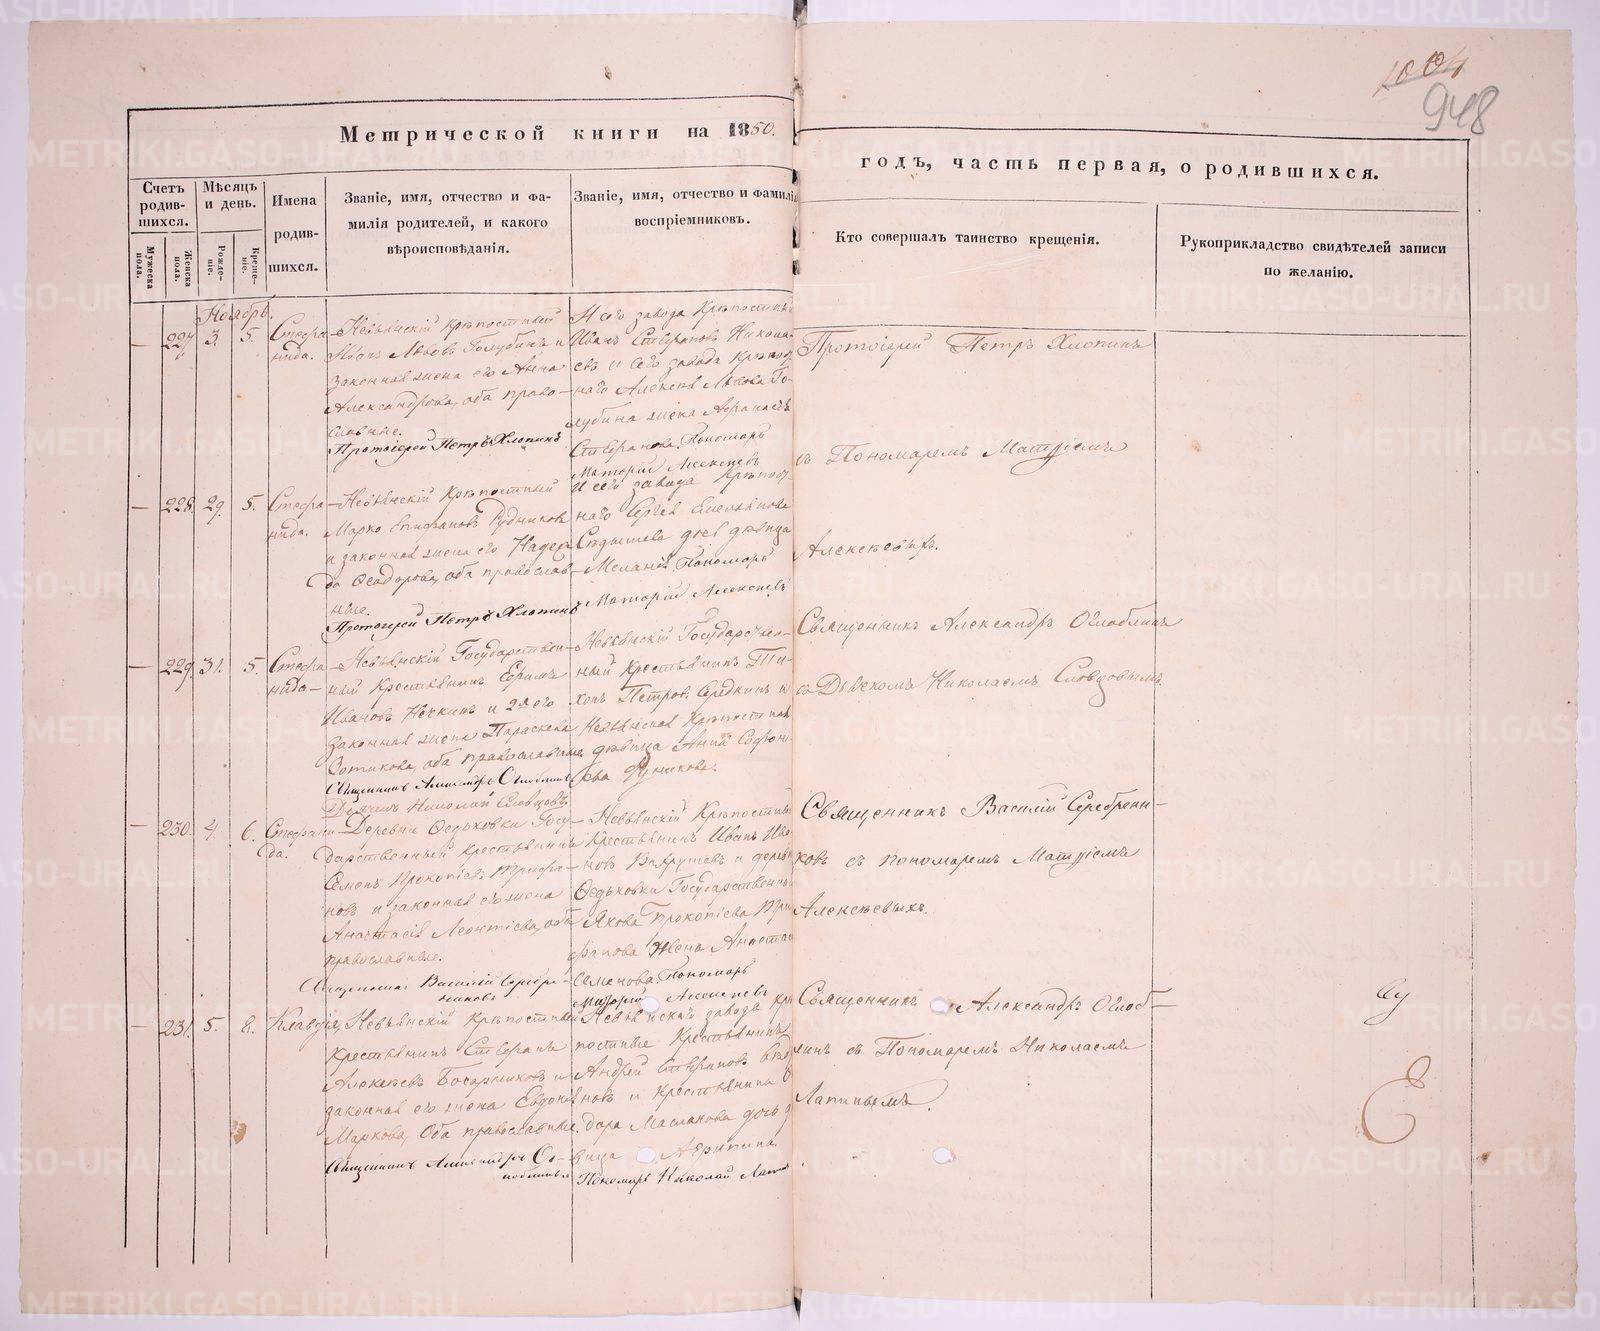 1004
948
Метрической книги на 1850.
годъ, часть первая, о родившихся.
Счетъ родив-шихся.
Мужеска пола.
Женска пола.
Мѣсяцъ и день.
Рожде-ніе.
Креще-ніе.
Имена
родив-
шихся.
Званіе, имя, отчество и фа-
милія родителей, и какого
вѣроисповѣданія.
Званіе, имя, отчество и фамилія
воспріемниковъ.
Кто совершалъ таинство крещенія.
Рукоприкладство свидѣтелей записи
по желанію.
Ноябрь.
227 3. 5. Стефа-
нида.
Невьянскій крѣпостный
Львовъ Голубинъ и
законная жена его Анна
Александрова, оба право-
славные.
Протоіерей Петръ Хлопинъ
И сего завода Крѣпостный
Иванъ Стефановъ Никола-
евъ и сего завода крѣпост-
наго Алексѣя Львова Го-
лубина жена Афанасія
Стефанова. Пономарь
Матфій Алексѣевъ
Протоіерей Петръ Хлопинъ
съ Пономаремъ Матфіемъ
Алексѣевыхъ.
228. 29. 5. Стефа-
нида.
Невьянскій Крѣпостный
Марко Епифановъ Рудниковъ
и законная жена его Надеж
да Ѳеодорова, оба православ-
ные.
Протоіерей Петръ Хлопинъ
И сего завода Крѣпост-
наго Сергея Емельянова
дочь дѣвица
Меланія. Пономарь
Матфій Алексѣевъ
229. 31. 5. Стефа-
нида
Невьянскій Государствен-
ный Крестьянинъ Ефимъ
Ивановъ Нечкинъ и 2я его
законная жена Параскева
Зотикова, оба православные.
Священникъ Александръ Оглоблинъ
Дьячекъ Николай Словцовъ.
Невьянскій Государствен-
ный Крестьянинъ Ти-
хонъ Петровъ Середкинъ и
Невьянская Крѣпостная
дѣвица Анна Софон-
Священникъ Александръ Оглоблинъ
съ Дьячкомъ Николаемъ Словцовымъ.
230. 4. 6. Стефани-
да.
Деревни Ѳедьковки Госу-
дарственный крестьянинъ
Семенъ Прокопіевъ Трифа-
новъ и законная его жена
Анастасія Леонтіева, оба
православные.
Священникъ Василій Серебре-
никовъ
Невьянскій Крѣпостный
Крестьянинъ Иванъ Ива-
новъ Вахрушевъ и деревни
Ѳедьковки Государственнаго
Якова Прокопіева Три-
фанова Жена Анастасія
Семенова. Пономарь
Матфій Алексѣевъ
Священникъ Василій Серебрени-
ковъ съ пономаремъ Матфіемъ
Алексѣевыхъ.
231. 5. 8. Клавдія,
Невьянскій Крѣпостный
Крестьянинъ Стефанъ
Алексѣевъ и
законная его жена Евдокія
Маркова, Оба православные.
Священникъ Александръ Ог-
лоблинъ
Невьянскаго завода крѣ-
постные Крестьянинъ
Андрей Стефановъ
новъ и Крестьянина
дора Маслакова дочь дѣ-
вица Агрипина.
Пономарь Николай Лапинъ
Священникъ Александръ Оглоб-
линъ съ Пономаремъ Николаемъ
Лапинымъ.
METRIKI.GASO-URAL.RU